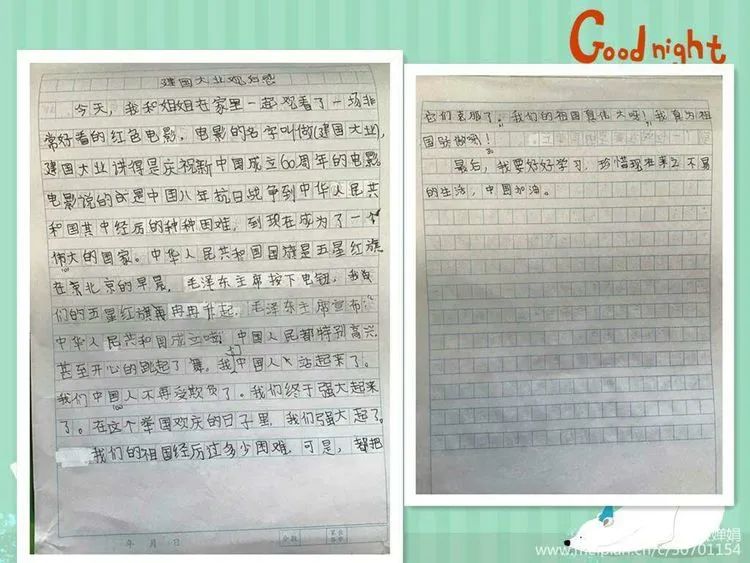 Good night
建国大业观后感
今天，我和姐姐在家里一起观看了一场非
常好看的红色电影。电影的名字叫做《建国大业》，
建国大业讲得是庆祝新中国成立60周年的电影。
电影说的时是中国八年抗日战争到中华人民共
和国其中经历的种种困难，到现在成为了一个
伟大的国家。中华人民共和国国旗是五星红旗
在北京的早晨，毛泽东主席按下电钮，我
们的五星红旗冉冉升起，毛泽东主席宣布：
中华人民共和国成立啦！中国人民都特别高兴
甚至开心的跳起了舞。我们中国人站起来了。
我们中国人不再受欺负了。我们终于强大起来
了。在这个举国欢庆的日子里，我们强大起了。
我们的祖国经历过多少困难，可是，都把
年 月 日
它们克服了。我们的祖国真伟大呀！我真为祖
国骄傲呀！
最后，我要好好学习，珍惜现在来之不易
的生活，中国加油。
婵娟
www.meipian.cn/c/50701154